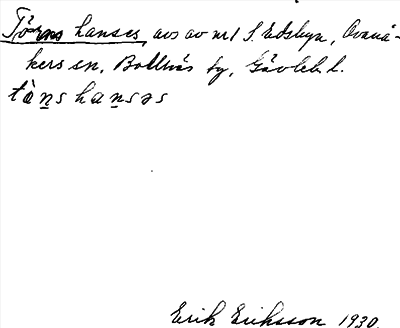 Törns hanses, avs av nr 1 S. Edsbyn, Ovanå-
kers sn, Bollnäs tg, Gävleb. l.
tὰn̲s han̲səs
Erik Eriksson 1930.